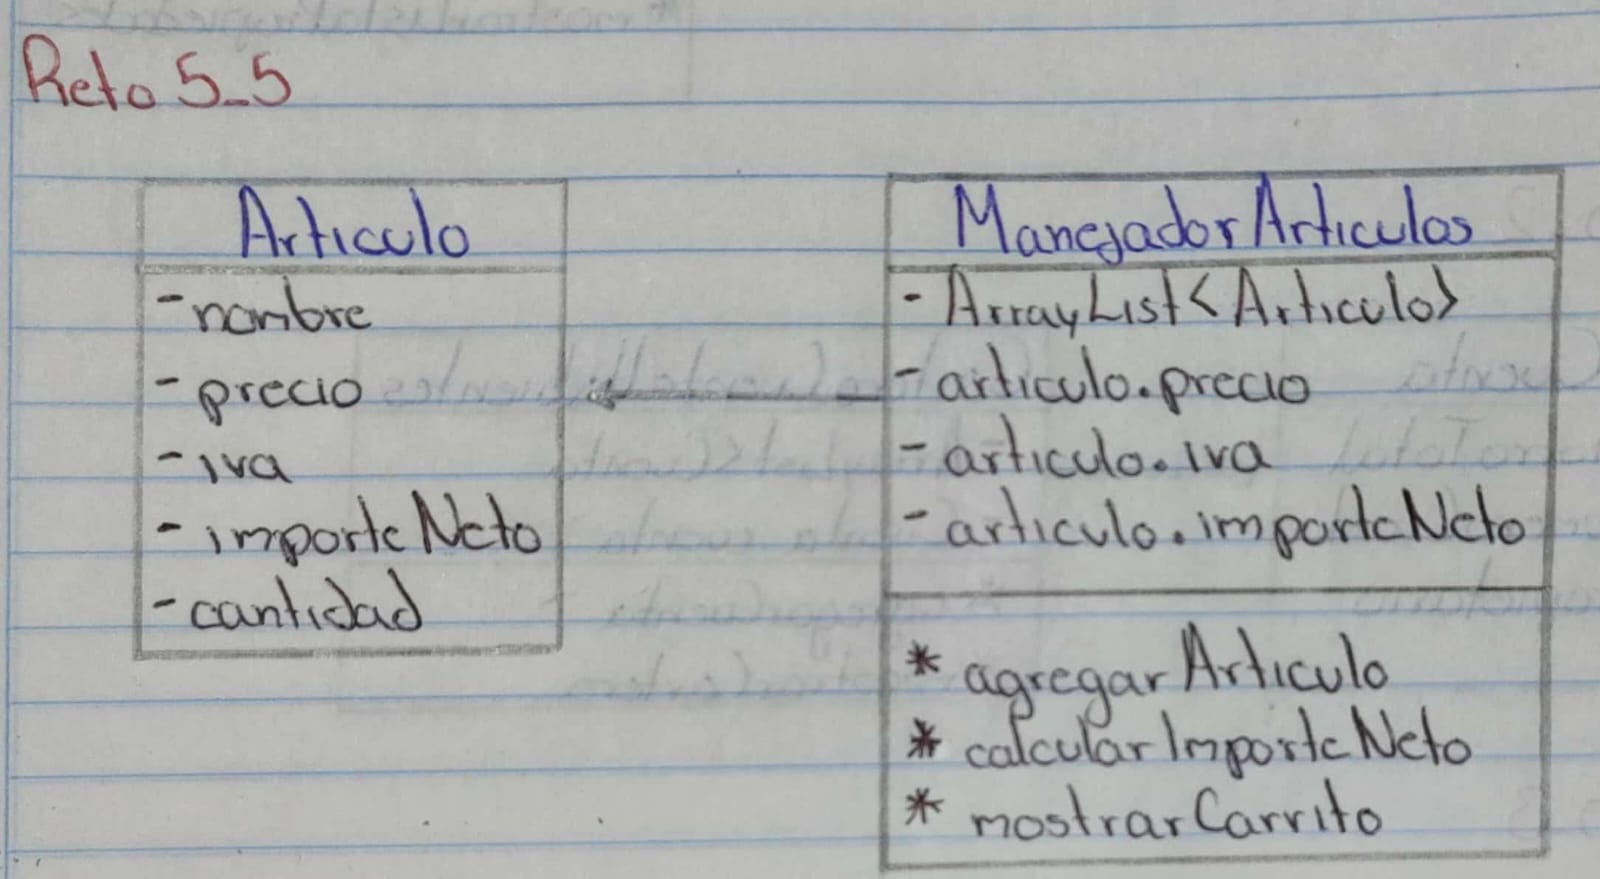 Reto 5_5
Articulo
- nombre
- precio
- iva
- importeNeto
- cantidad
ManejadorArticulos
- ArrayList<Articulo>
- articulo.precio
- articulo.iva
- articulo.importeNeto
* agregarArticulo
* calcularImporteNeto
* mostrarCarrito